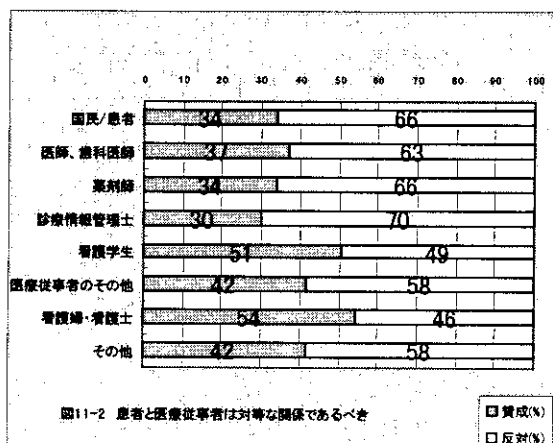 0 10 20 30 40 50 60 70 80 90 100
国民/患者 34 66
医師、歯科医師 37 63
薬剤師 34 66
診療情報管理士 30 70
看護学生 51 49
医療従事者のその他 42 58
看護婦・看護士 54 46
その他 42 58
図11-2 患者と医療従事者は対等な関係であるべき
賛成(%)
反対(%)